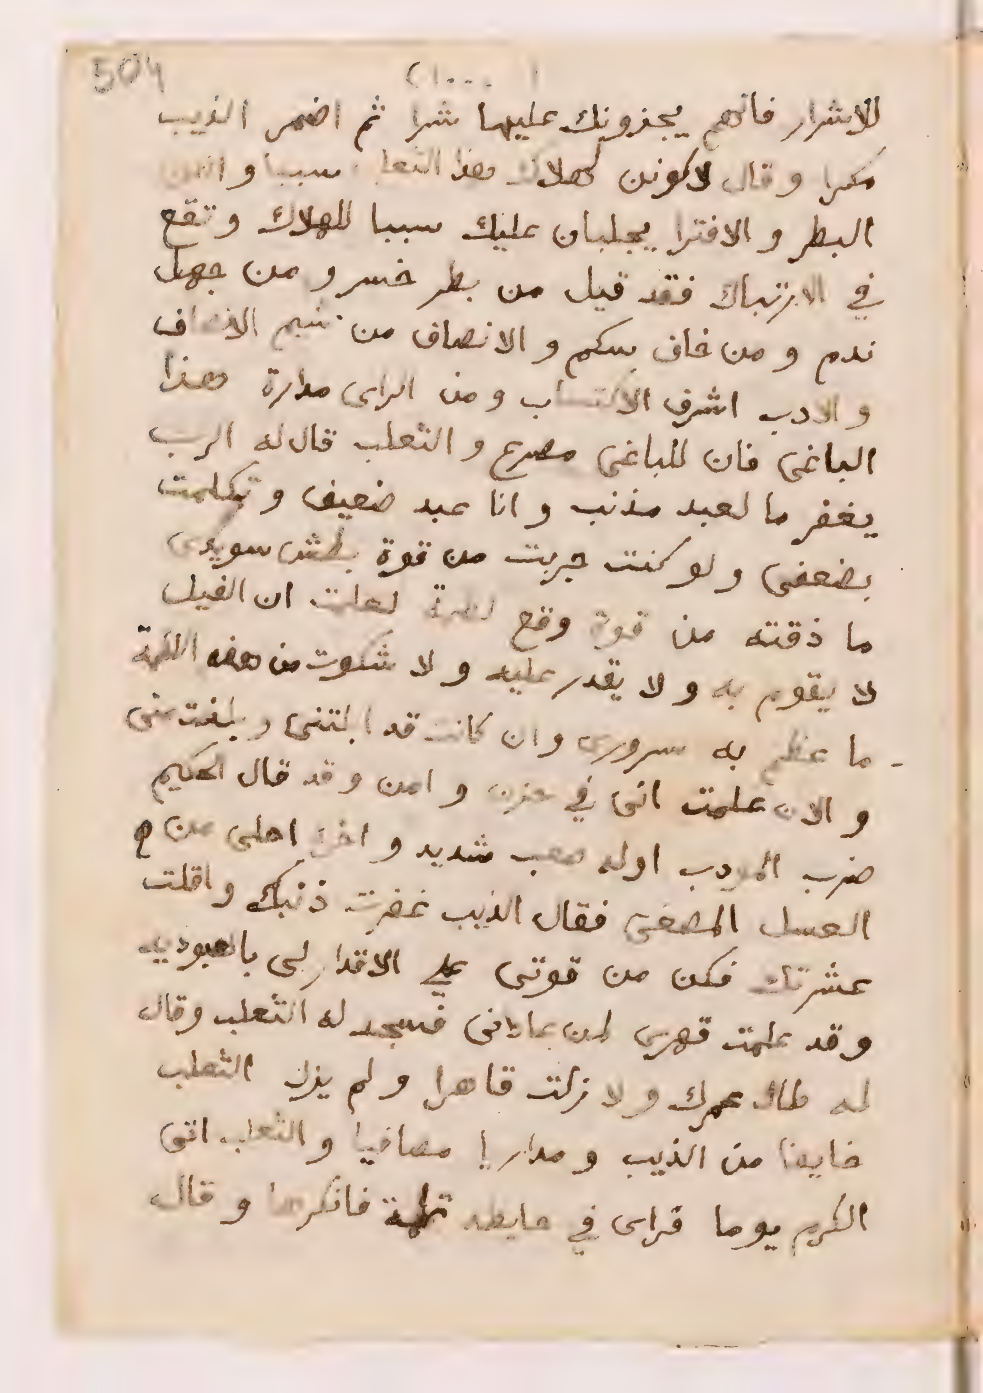 504
(١٠٠٠)
للاشرار فانهم يجزونك عليها شرا ثم اضمر الذيب
مكرا وقال لاكونن لهلاك هذا الثعلب سببا و
البطر و الافترا يجلبان عليك سببا للهلاك و تقع
في الارتباك فقد قيل من بطر خسر و من جهل
ندم و من خاف سكم و الانصاف من شيم الاشراف
و الادب اشرف الاكتساب و من الراى مدارة هذا
الباغى فان للباغى مصرع و الثعلب قال له الرب
يغفر ما لعبد مذنب و انا عبد ضعيف و تكلمت
بضعفى و لو كنت جربت من قوة بطش سويدى
ما ذقته من قوة وقع لطمة لعلمت ان الفيل
لا يقوم به و لا يقدر عليه و لا شكوت من هذه اللطمة
ما عظم به سرورى و ان كانت قد ابلتنى و بلغت منى
و الان علمت انى في حزن و امن و قد قال الحكيم
ضرب المودب اوله صعب شديد و اخره احلى من
العسل المصفى فقال الذيب غفرت ذنبك و اقلت
عشرتك فكن من قوتى على الاقدار لى بالعبوديه
و قد علمت قهرى لمن عادانى فسجد له الثعلب وقال
له طال عمرك و لا زلت قاهرا و لم يزل الثعلب
خايفا من الذيب و مداريا مصافيا و الثعلب اتى
الكرم يوما فراى في حايطه ثلمة فانكرها و قال